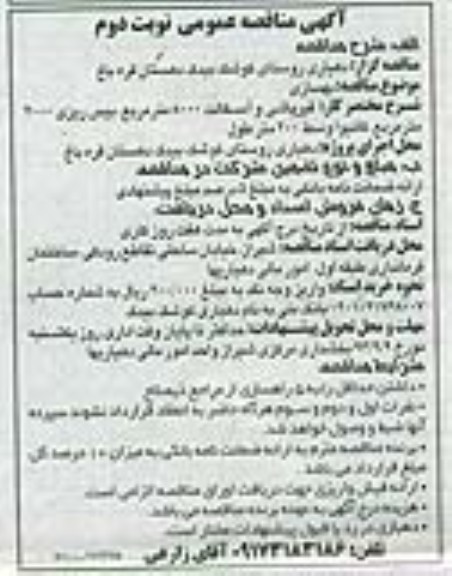 آگهی مناقصه عمومی نوبت دوم
الف: شرح مناقصه
مناقصه گزار: دهیاری روستای کوشک بیدک دهستان قره باغ
موضوع مناقصه: بهسازی
شرح مختصر کار: زیرسازی و آسفالت ۸۰۰۰ متر مربع بیس ریزی
متر مربع کانیوا وسط ۲۰۰ متر طول
محل اجرای پروژه: دهیاری روستای کوشک بیدک دهستان قره باغ
ب: مبلغ و نوع تضمین شرکت در مناقصه
ارائه ضمانت نامه بانکی به مبلغ ۵ درصد مبلغ پیشنهادی
ج: زمان فروش اسناد و محل دریافت
اسناد مناقصه: از تاریخ درج آگهی به مدت هفت روز کاری
محل دریافت اسناد مناقصه: شیراز خیابان ساحلی تقاطع رودکی ساختمان
فرمانداری طبقه اول، امور مالی دهیاریها
نحوه خرید اسناد: واریز وجه نقد به مبلغ ریال به شماره حساب
بانک ملی به نام دهیاری کوشک بیدک
مهلت و محل تحویل پیشنهادات: حداکثر تا پایان وقت اداری روز یکشنبه
مورخ بخشداری مرکزی شیراز واحد امور مالی دهیاریها
شرایط مناقصه
• داشتن حداقل رتبه ۵ راهسازی از مراجع ذیصلاح
• نفرات اول و دوم و سوم هرگاه حاضر به انعقاد قرارداد نشوند سپرده
آنها ضبط و وصول خواهد شد.
• برنده مناقصه ملزم به ارائه ضمانت نامه بانکی به میزان ۱۰ درصد کل
مبلغ قرارداد می باشد.
• ارائه فیش واریزی جهت دریافت اوراق مناقصه الزامی است.
• هزینه درج آگهی به عهده برنده مناقصه می باشد.
• دهیاری در رد یا قبول پیشنهادات مختار است.
تلفن: ۰۹۱۷۳۱۸۳۱۸۶ آقای زارعی